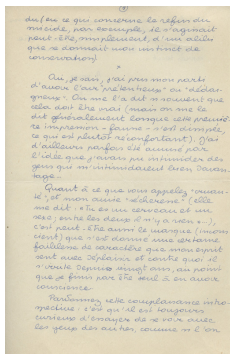 du / ou ce qui concerne le refus du
suicide, par exemple, il s'agirait
peut-être, simplement, d'un alibi
que se donnait mon instinct de
conservation).
*
Oui, je sais, j'ai pris mon parti
d'avoir l'air "prétentieux" ou "dédai-
gneux". On me l'a dit si souvent que
cela doit être vrai (mais on me le
dit généralement lorsque cette premiè-
re impression - fausse - s'est dissipée,
ce qui est plutôt réconfortant). J'ai
d'ailleurs parfois été amusé par
l'idée que j'avais pu intimider des
gens qui m'intimidaient bien davan-
tage.
Quant à ce que vous appelez
et, et mon amie "sécheresse" (elle
me dit : "tu es un cerveau et un
sexe ; entre les deux il n'y a rien"),
c'est peut-être aussi le masque (incons-
cient) que s'est donné une extrême
faiblesse de caractère que mon esprit
sent avec déplaisir et contre quoi il
lutte depuis vingt ans, au point
que je finis par être seul à en avoir
conscience
Pardonnez cette complaisance intro-
spective : c'est qu'il est toujours
curieux d'essayer de se voir avec
les yeux des autres, comme si l'on